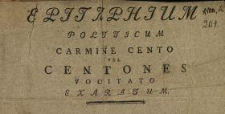 EPITAPHIUM
POLITICUM
CARMINE CENTO
VEL
CENTONES
VOCITATO
EXARATUM.